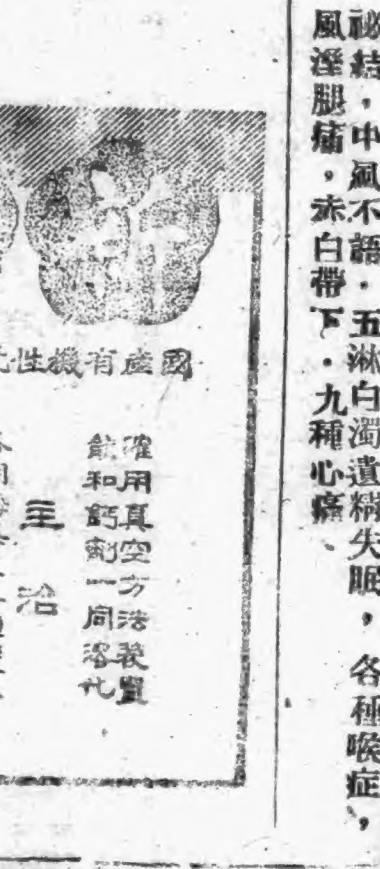 祕結，中風不語．五淋白濁遺精失眠，各種喉症、，
風淫腿痛，赤白帶下．九種心痛、
新
國產有機性
確用真空方法裝置
能和鈣劑一同溶化
主治